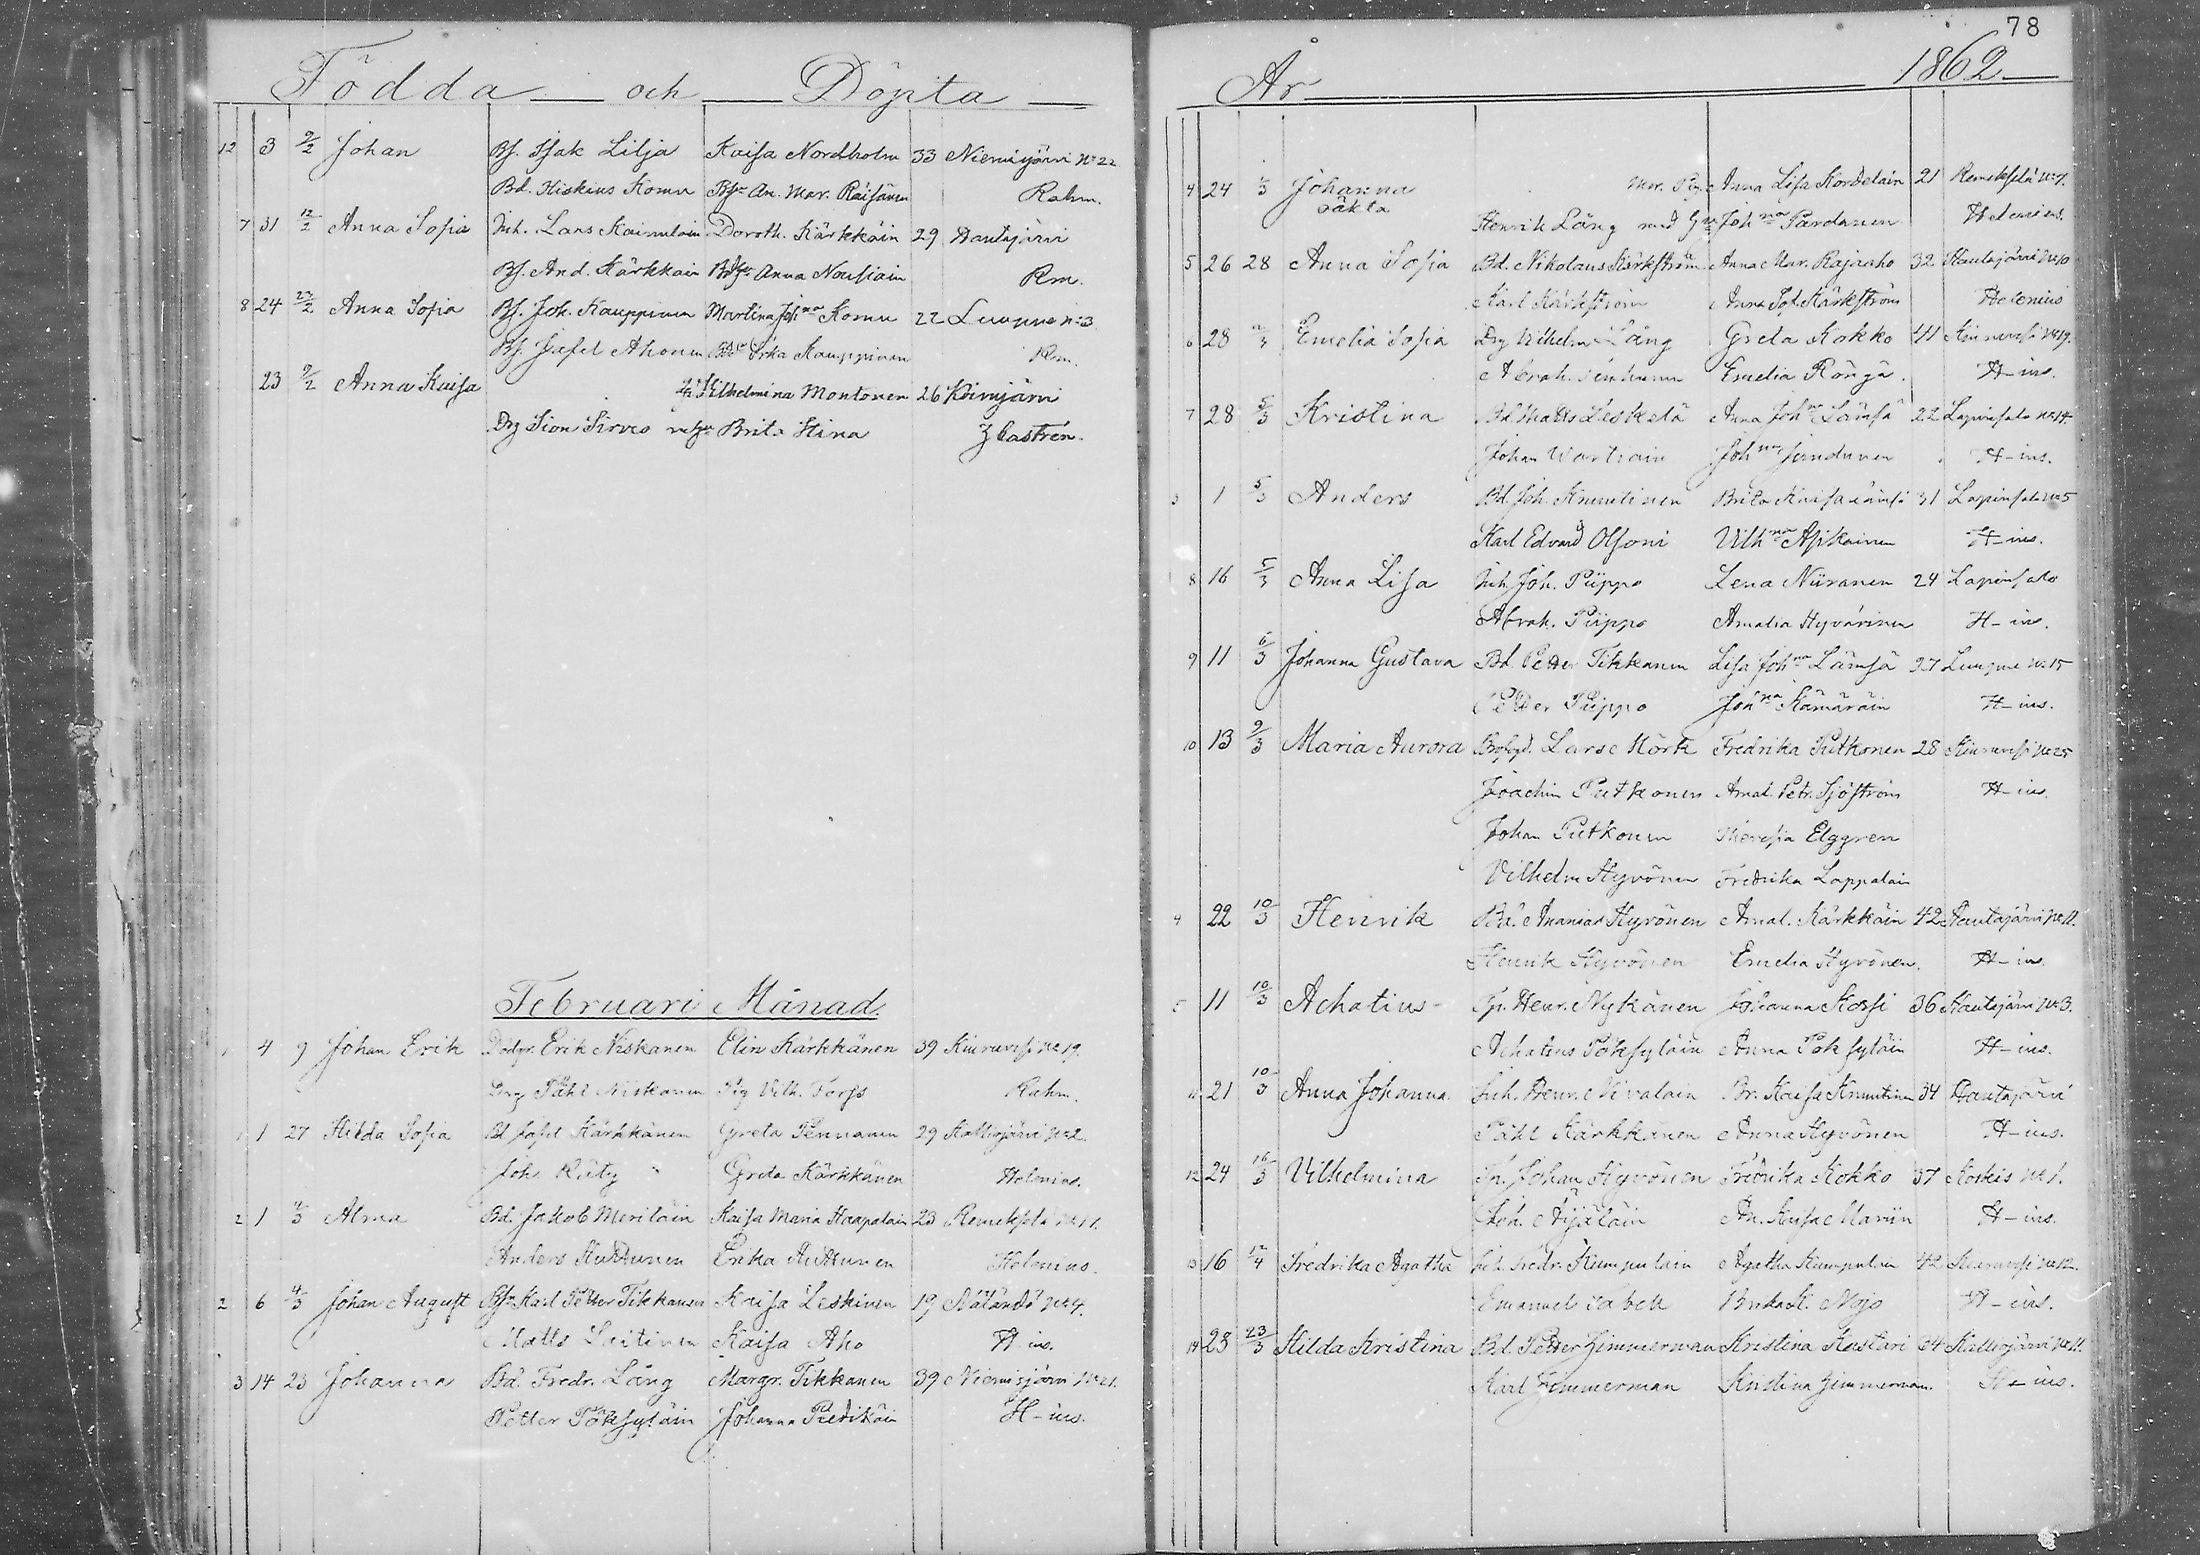 Födda och Döpta
12 3 9/2 Johan Bf. Isak Lilja Kaisa Nordholm 33 Niemisjärvi No 22
Bd. Hiskius Komu An. Mar. Räisänen Rahm.
7 31 12/2 Anna Sofia Inh. Lars Kainulain Doroth. Kärkkäin 29 Hautajärvi
Bf. And. Kärkkäin Anna Nousiain Rm.
8 24 23/2 Anna Sofia Bf. Joh. Kauppinen Martina Johna Komu 22 Luupuve No 3
Bf. Josef Ahonen Erka Kauppinen Rm.
23 9/2 Anna Kaisa Vilhelmina Montonen 26 Koivujärvi
Drg Sion Sirveo Brita Stina Z Castrén.
Februari Månad.
1 4 9 Johan Erik Erik Niskanen Elin Kärkkänen 39 Kiuruvesi No 19.
Drg Påhl Niskanen Pig Vilh. Forss Rahm.
1 1 27 Hilda Sofia Bd Josef Kärkkänen Greta Pennanen 29 Kalliojärvi No 2.
Joh. Rüty Greta Kärkkänen Helenius.
2 1 4/3 Alma Bd. Jakob Meriläin Kaisa Maria Haapalain 23 Remeksela No 11.
Anders Huttunen Erika Huttunen Helenius.
2 6 4/3 Johan August Karl Petter Tikkanen Kaisa Leskinen 19 Näläntö No 4.
Matts Laitinen Kaisa Aho H-ins.
3 14 23 Johanna Bd. Fredr. Lång Margr. Tikkanen 39 Niemisjärvi No 21.
Petter Pöksyläin Johanna Piedikäin H-ins.
78
År 1862
4 24 1/3 Johanna Anna Lisa Kordelain 21 Remeksela No 7.
oäkta
Henrik Lång med Johna Pardanen Helenius.
5 26 28 Anna Sofia Bd. Nikolaus Kärkström Anna Mar. Rajaaho 32 Hautajärvi No 10
Karl Kärkström Anna Sof. Kärkström Helenius
6 28 Emelia Sofia Drg Vilhelm Lång Greta Kokko 41 Kiuruvesi No 19.
Abrah. Emelia Röngä. H-ins.
7 28 5/3 Kristina Bd Matts Leskelä Anna Johna Lämsä 22 Lapinsalo No 14.
Johan Wartiain Johna H-ins.
3 1 5/3 Anders Bd. Joh. Knuutinen Brita Kaisa Lämsä 31 Lapinsalo No 5
Karl Edvard Olsoni Vilhna Asikainen H-ins.
8 16 5/3 Anna Lisa Inh. Joh. Piippo Lena Niiranen 24 Lapinsalo
Abrah. Piippo Amalia Hyvärinen H-ins.
9 11 6/3 Johanna Gustava Bd. Petter Tikkanen Lisa Johna Lämsä 27 Luupuve No 15
Petter Piippo Johna Kämäräin H-ins.
10 13 9/3 Maria Aurora Lars Mörk Fredrika Putkonen 28 Kiuruvesi No 25
Joachim Putkonen Amal. Petr. Sjöström H-ins.
Johan Putkonen Theresia Elggren
Vilhelm Hyvönen Fredrika Lappalain
4 22 10/3 Henrik Bd. Ananias Hyvönen Amal. Kärkkäin 42 Hautajärvi No 11.
Henrik Hyvönen Emelia Hyvönen. H-ins.
5 11 10/3 Achatius Tp. Henr. Nykänen Johanna Kossi 36 Hautajärvi No 3.
Achatius Pöksyläin Anna Pöksyläin H-ins.
11 21 10/3 Anna Johanna Inh. Henr. Nivalain Br. Kaisa Knuutinen 34 Hautajärvi
Påhl Kärkkänen Anna Hyvönen H-ins.
12 24 16/3 Vilhelmina Tp. Johan Hyvönen Fredrika Kokko 37 Koskis No 1.
Joh. Äijäläin An. Kaisa Mariin H-ins.
13 16 12/4 Fredrika Agatha Inh. Fredr. Kumpulain Agatha Kumpulain 42 Kiuruvesi No 12.
Emanuel Sabell Brita K. Mojo H-ins.
14 23 23/3 Hilda Kristina Bd. Petter Zimmerman Kristina Kustari 34 Kalliojärvi No 11.
Karl Zimmerman Kristina Zimmerman. H-ins.